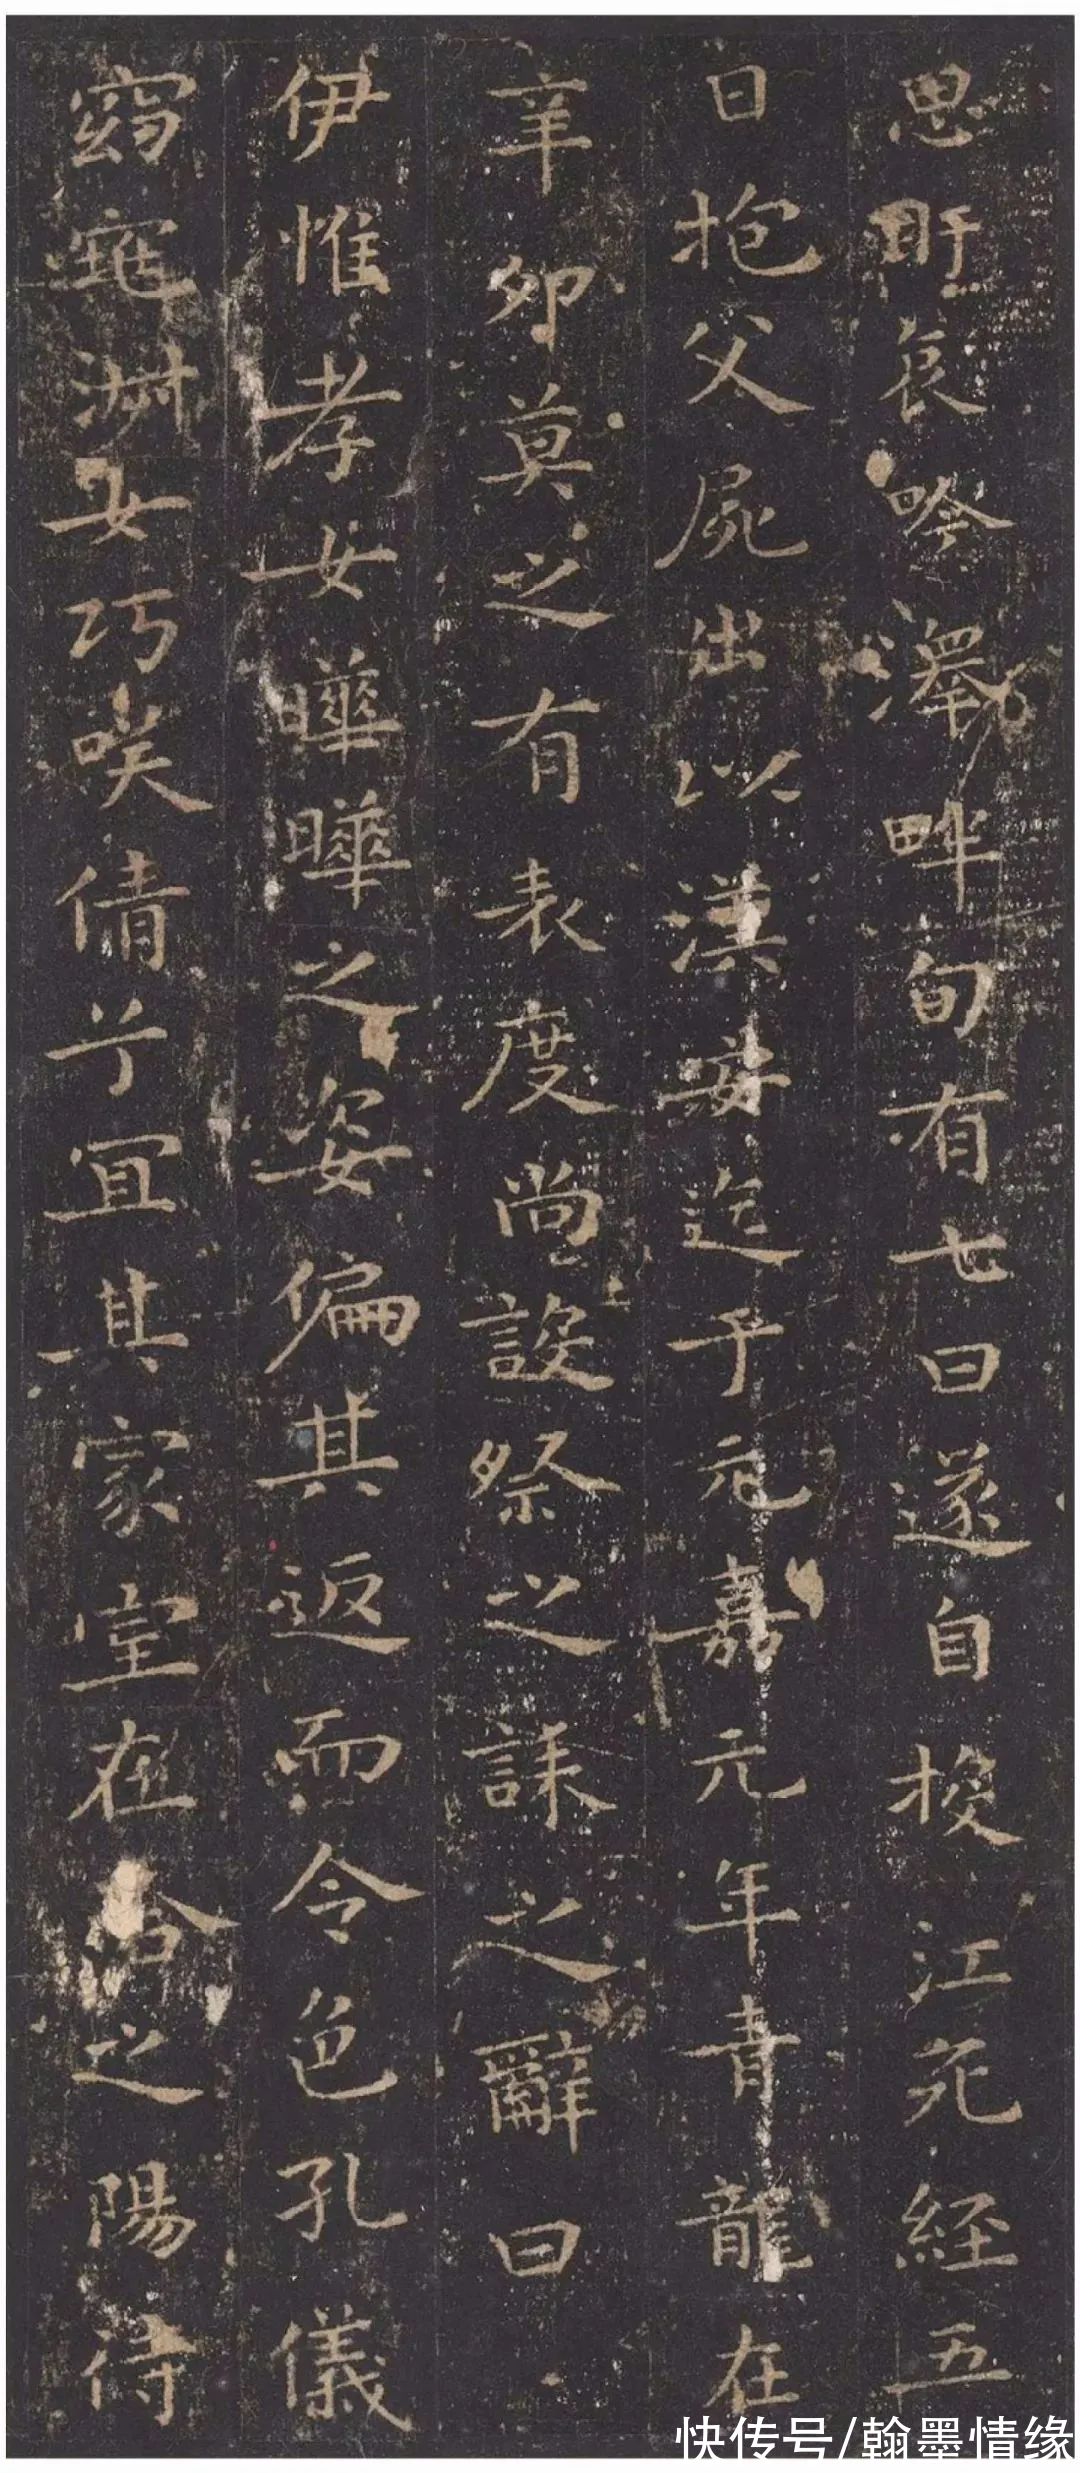 思盱哀吟澤畔旬有七日遂自投江死經五
日抱父屍出以漢安迄于元嘉元年青龍在
辛卯莫之有表度尚設祭之誄之辭曰
伊惟孝女曄曄之姿偏其返而令色孔儀
窈窕淑女巧咲倩兮宜其家室在洽之陽待
快传号/翰墨情缘